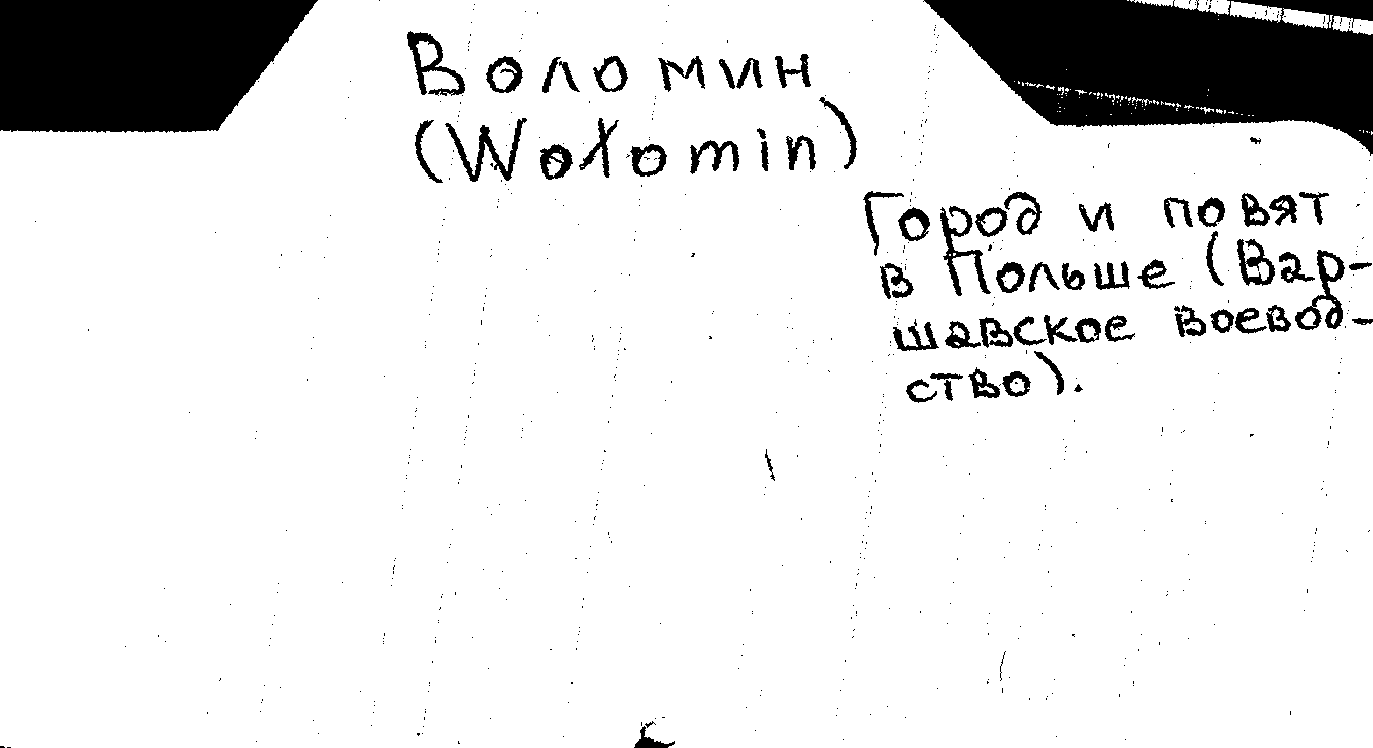 Воломин
(Wołomin)
Город и повят
в Польше (Вар-
шавское воевод-
ство).